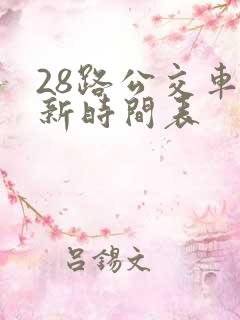 28路公交車
新時間表
呂錫文